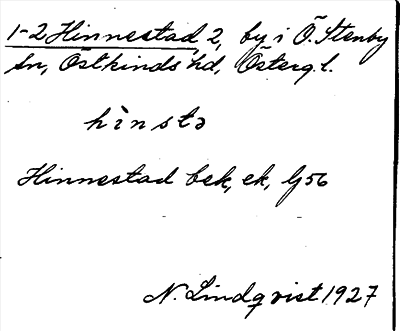 1-2 Hinnestad 2, by i Ö. Stenby
sn, Östkinds hd, Österg.l.
hìnstə
Hinnestad bek, ek, G56
N. Lindqvist 1927